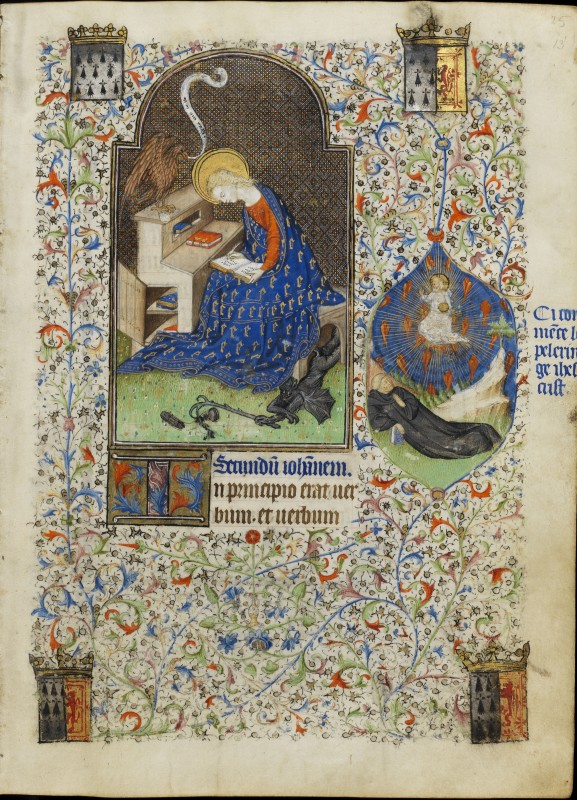 Secundū iohānem.
In principio erat uer
bum. et uerbum
Ci com
mēce le
pelerin
ge ihes
crist